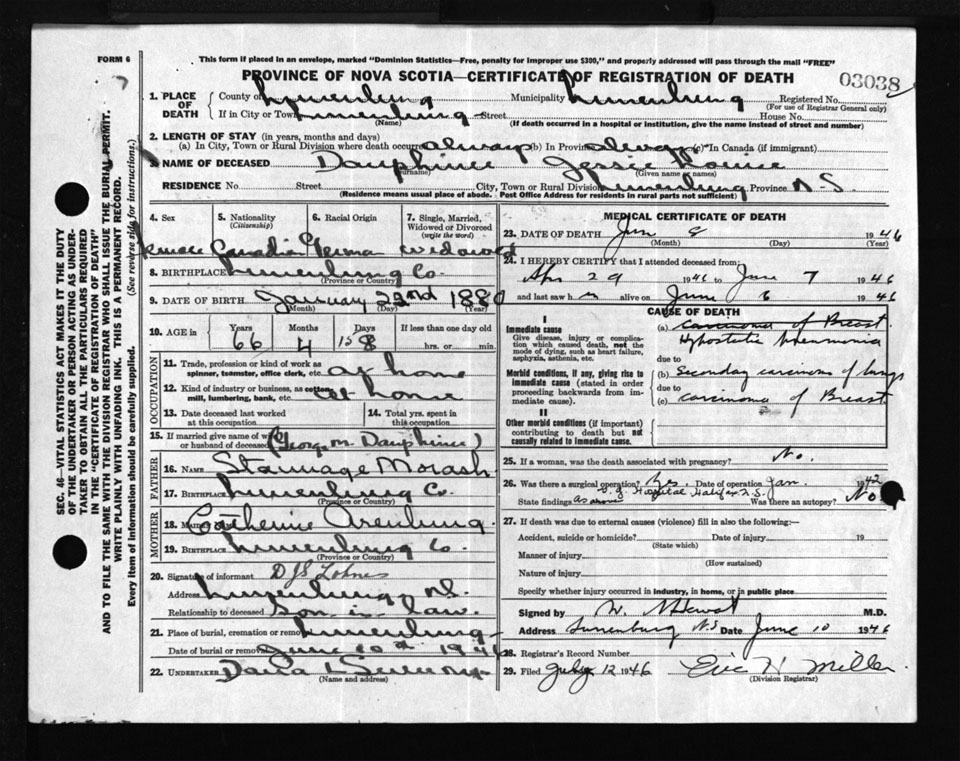 FORM 6
This form if placed in an envelope, marked "Dominion Statistics—Free, penalty for improper use $300," and properly addressed will pass through the mail "FREE"
PROVINCE OF NOVA SCOTIA—CERTIFICATE OF REGISTRATION OF DEATH
03038
SEC. 46—VITAL STATISTICS ACT MAKES IT THE DUTY
OF THE UNDERTAKER OR PERSON ACTING AS UNDER-
TAKER TO OBTAIN ALL THE PARTICULARS REQUIRED
IN THE "CERTIFICATE OF REGISTRATION OF DEATH"
AND TO FILE THE SAME WITH THE DIVISION REGISTRAR WHO SHALL ISSUE THE BURIAL PERMIT.
WRITE PLAINLY WITH UNFADING INK. THIS IS A PERMANENT RECORD.
Every item of information should be carefully supplied. (See reverse side for instructions.)
1. PLACE OF DEATH County of Lunenburg Municipality Lunenburg Registered No.
(For use of Registrar General only)
If in City or Town Lunenburg Street House No.
(Name) (If death occurred in a hospital or institution, give the name instead of street and number)
2. LENGTH OF STAY (in years, months and days)
(a) In City, Town or Rural Division where death occurred always (b) In Province always (c) In Canada (if immigrant)
3. NAME OF DECEASED Dauphinee Jessie Louise
(Surname) (Given name or names)
RESIDENCE No. Street City, Town or Rural Division Lunenburg Province N-S.
(Residence means usual place of abode. Post Office Address for residents in rural parts not sufficient)
4. Sex 5. Nationality (Citizenship) 6. Racial Origin 7. Single, Married, Widowed or Divorced (write the word)
Female Canadian German widowed
8. BIRTHPLACE Lunenburg Co.
(Province or Country)
9. DATE OF BIRTH January 22nd 1880
(Month) (Day) (Year)
10. AGE in Years Months Days If less than one day old
66 4 15 8 hrs. or min.
OCCUPATION
11. Trade, profession or kind of work as spinner, teamster, office clerk, etc. at home
12. Kind of industry or business, as cotton mill, lumbering, bank, etc. at home
13. Date deceased last worked at this occupation 14. Total yrs. spent in this occupation
15. If married give name of wife or husband of deceased (George M. Dauphinee)
FATHER
16. NAME Stannage Morash
17. Birthplace Lunenburg Co.
(Province or Country)
MOTHER
18. MAIDEN Catherine Arenburg.
19. BIRTHPLACE Lunenburg Co.
(Province or Country)
20. Signature of informant D J S Lohnes
Address Lunenburg N.S.
Relationship to deceased Son in law.
21. Place of burial, cremation or removal Lunenburg
Date of burial or removal June 10th 1946
22. UNDERTAKER
(Name and address)
MEDICAL CERTIFICATE OF DEATH
23. DATE OF DEATH June 8 1946
(Month) (Day) (Year)
24. I HEREBY CERTIFY that I attended deceased from:
Apr 29 1946 to June 7 1946
and last saw h alive on June 6 1946
CAUSE OF DEATH
I
Immediate cause
Give disease, injury or complication which caused death, not the mode of dying, such as heart failure, asphyxia, asthenia, etc.
(a) carcinoma of Breast.
Hypostatic Pneumonia
due to
Morbid conditions, if any, giving rise to immediate cause (stated in order proceeding backwards from immediate cause).
(b) Secondary carcinoma of lungs
due to
(c) carcinoma of Breast
II
Other morbid conditions (if important) contributing to death but not causally related to immediate cause.
25. If a woman, was the death associated with pregnancy? No.
26. Was there a surgical operation? Yes. Date of operation Jan. 1942
State findings as above V. G. Hospital Halifax N.S. Was there an autopsy? No
27. If death was due to external causes (violence) fill in also the following:—
Accident, suicide or homicide? Date of injury 19
(State which)
Manner of injury
(How sustained)
Nature of injury
Specify whether injury occurred in industry, in home, or in public place
Signed by M.D.
Address Lunenburg N.S Date June 10 1946
28. Registrar's Record Number
29. Filed July 12 1946 Eric H Miller
(Division Registrar)